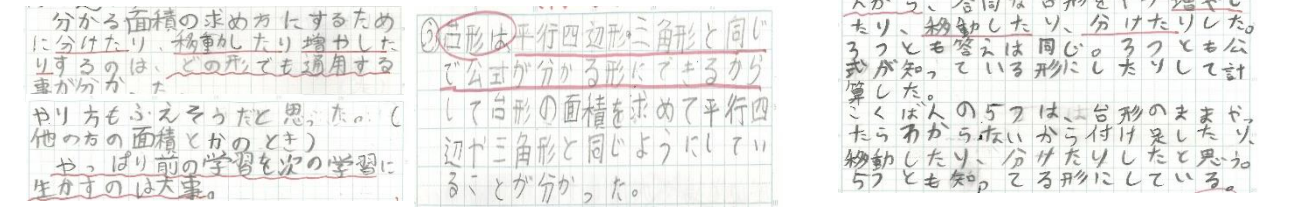 分かる面積の求め方にするため
に分けたり、移動したり増やした
りするのは、どの形でも通用する
事が分か た
やり方もふえそうだと思った。(
他の方の面積とかのとき)
やっぱり前の学習を次の学習に
生かすのは大事。
③台形は平行四辺形・三角形と同じ
で公式が分かる形にできるから
して台形の面積を求めて平行四
辺や三角形と同じようにしてい
ることが分かった。
たり、移動したり、分けたりした。
3つとも答えは同じ。3つとも公
式が知っている形にしたりして計
算した。
こくばんの5つは、台形のままやっ
たらわからないから付け足したり、
移動したり、分けたりしたと思う。
5つとも知ってる形にしている。